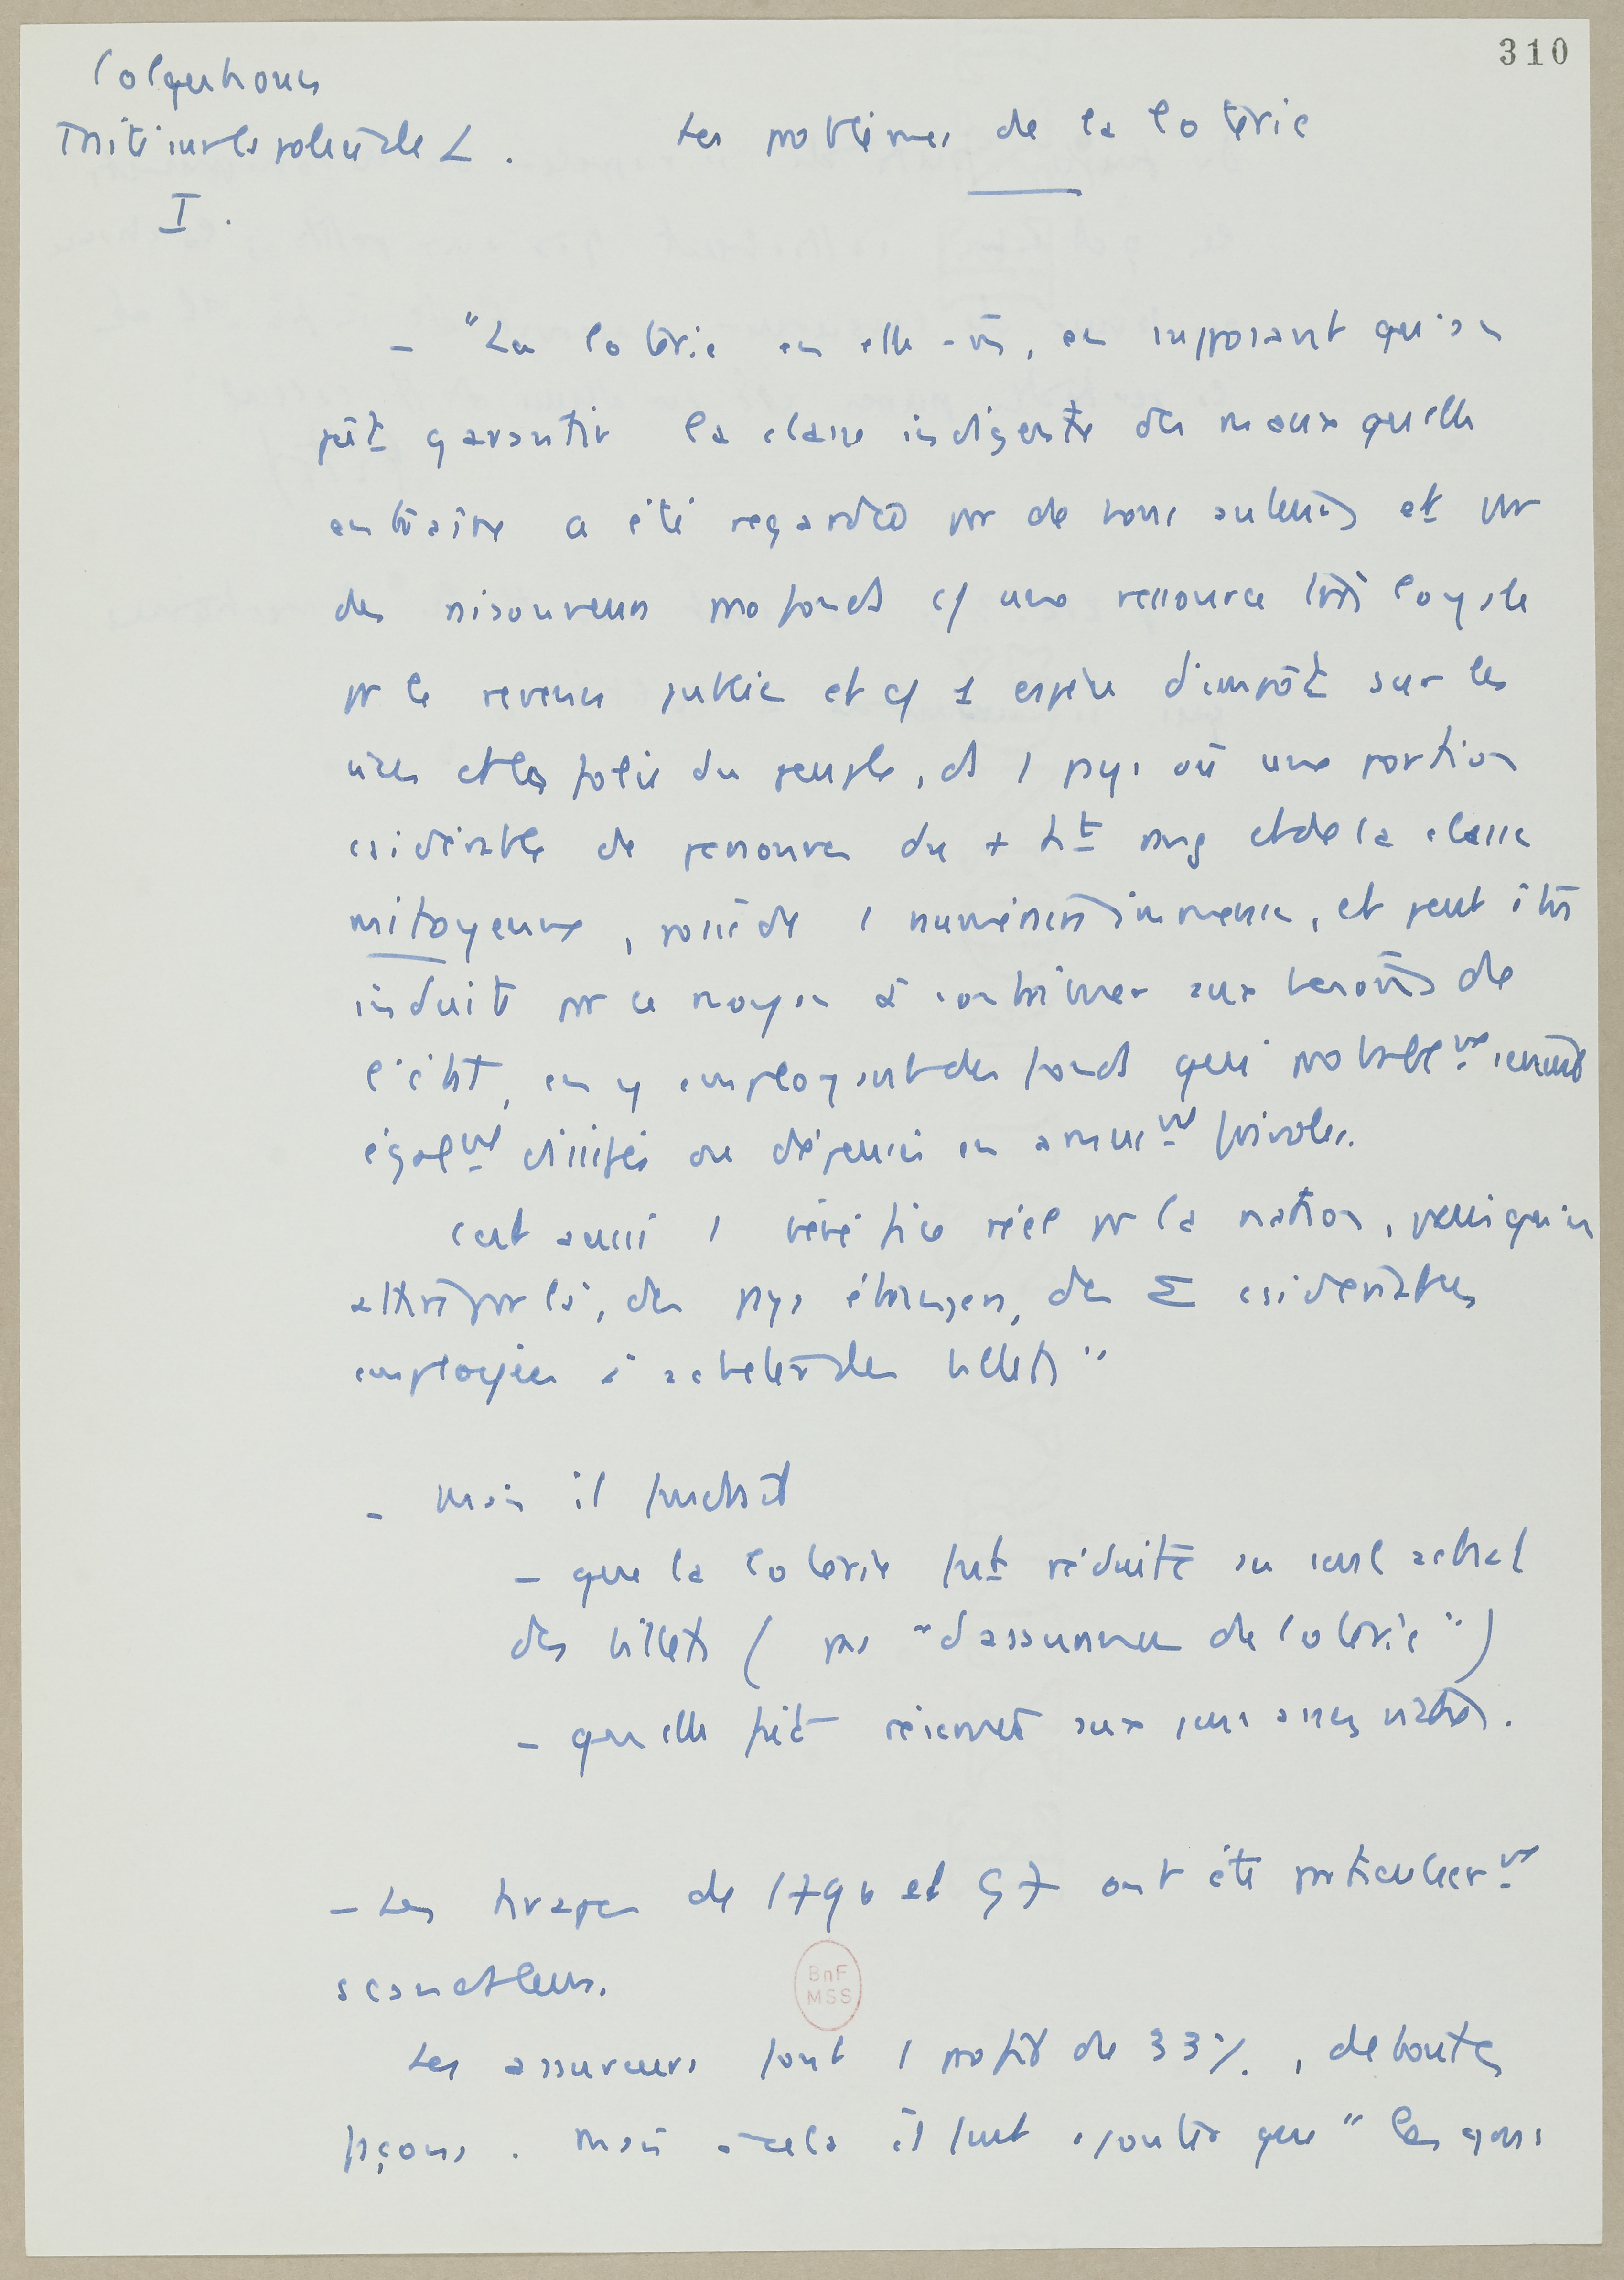 310
Colquhoun
Traité sur la police de L.
I.
Les problèmes de la loterie
- "La loterie en elle-m̄, en supposant qu'on
pût garantir la classe indigente des maux qu'elle
entraîne a été regardée pr de bons auteurs et pr
des raisonneurs profonds c/ une ressource très loyale
pr le revenu public et c/ 1 espèce d'impôt sur les
vices et les folies du peuple, ds 1 pays où une portion
csidérable de personnes du + ht rang et de la classe
mitoyenne, possède 1 numéraire immense, et peut être
induite pr ce moyen à contribuer aux besoins de
l'état, en y employant des fonds qui probablemt seraient
égalemt dissipés ou dépensés en amusemt frivoles.
C'est aussi 1 bénéfice réel pr la nation, puisqu'on
attire par là, des pays étrangers, des Σ csidérables
employées à acheter des billets"
- Mais il faudrait
- que la loterie fut réduite au seul achat
des billets (pas "d'assurances de loterie")
- qu'elle fût réservée aux gens assez riches.
- Les tirages de 1796 et 97 ont été particulièrmt
scandaleux.
Les assureurs font 1 profit de 33%, de toutes
façons. Mais à cela il faut ajouter que "les gens
BnF
MSS